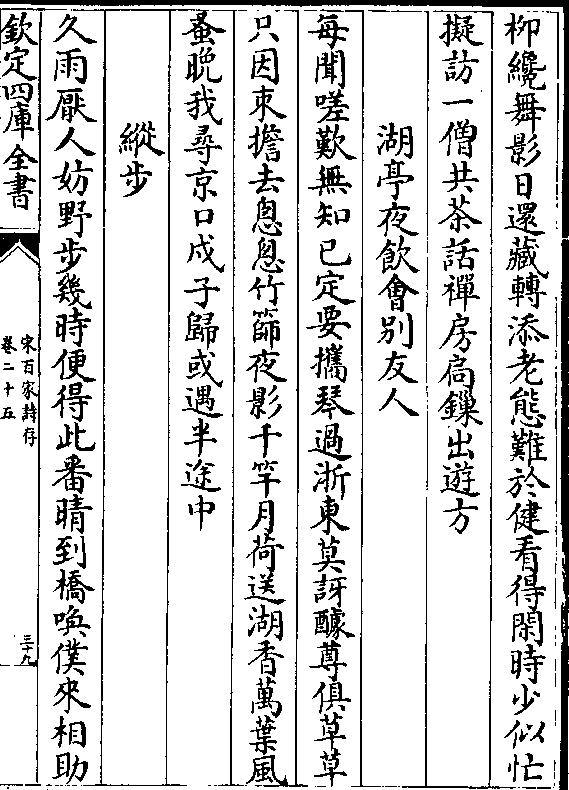 柳纔舞影日還藏轉添老態難於健看得閑時少似忙
擬訪一僧共茶話禪房高鏁出遊方
湖亭夜飲會别友人
每聞嗟歎無知己定要攜琴過浙東莫訝醵尊俱草草
只因朿擔去怱怱竹篩夜影千竿月荷送湖香萬葉風
蚤晩我尋京口戍子歸或遇半途中
縱步
久雨厭人妨野步幾時便得此番晴到橋喚僕來相助
欽定四庫全書
宋百家詩存
卷二十五
三十九